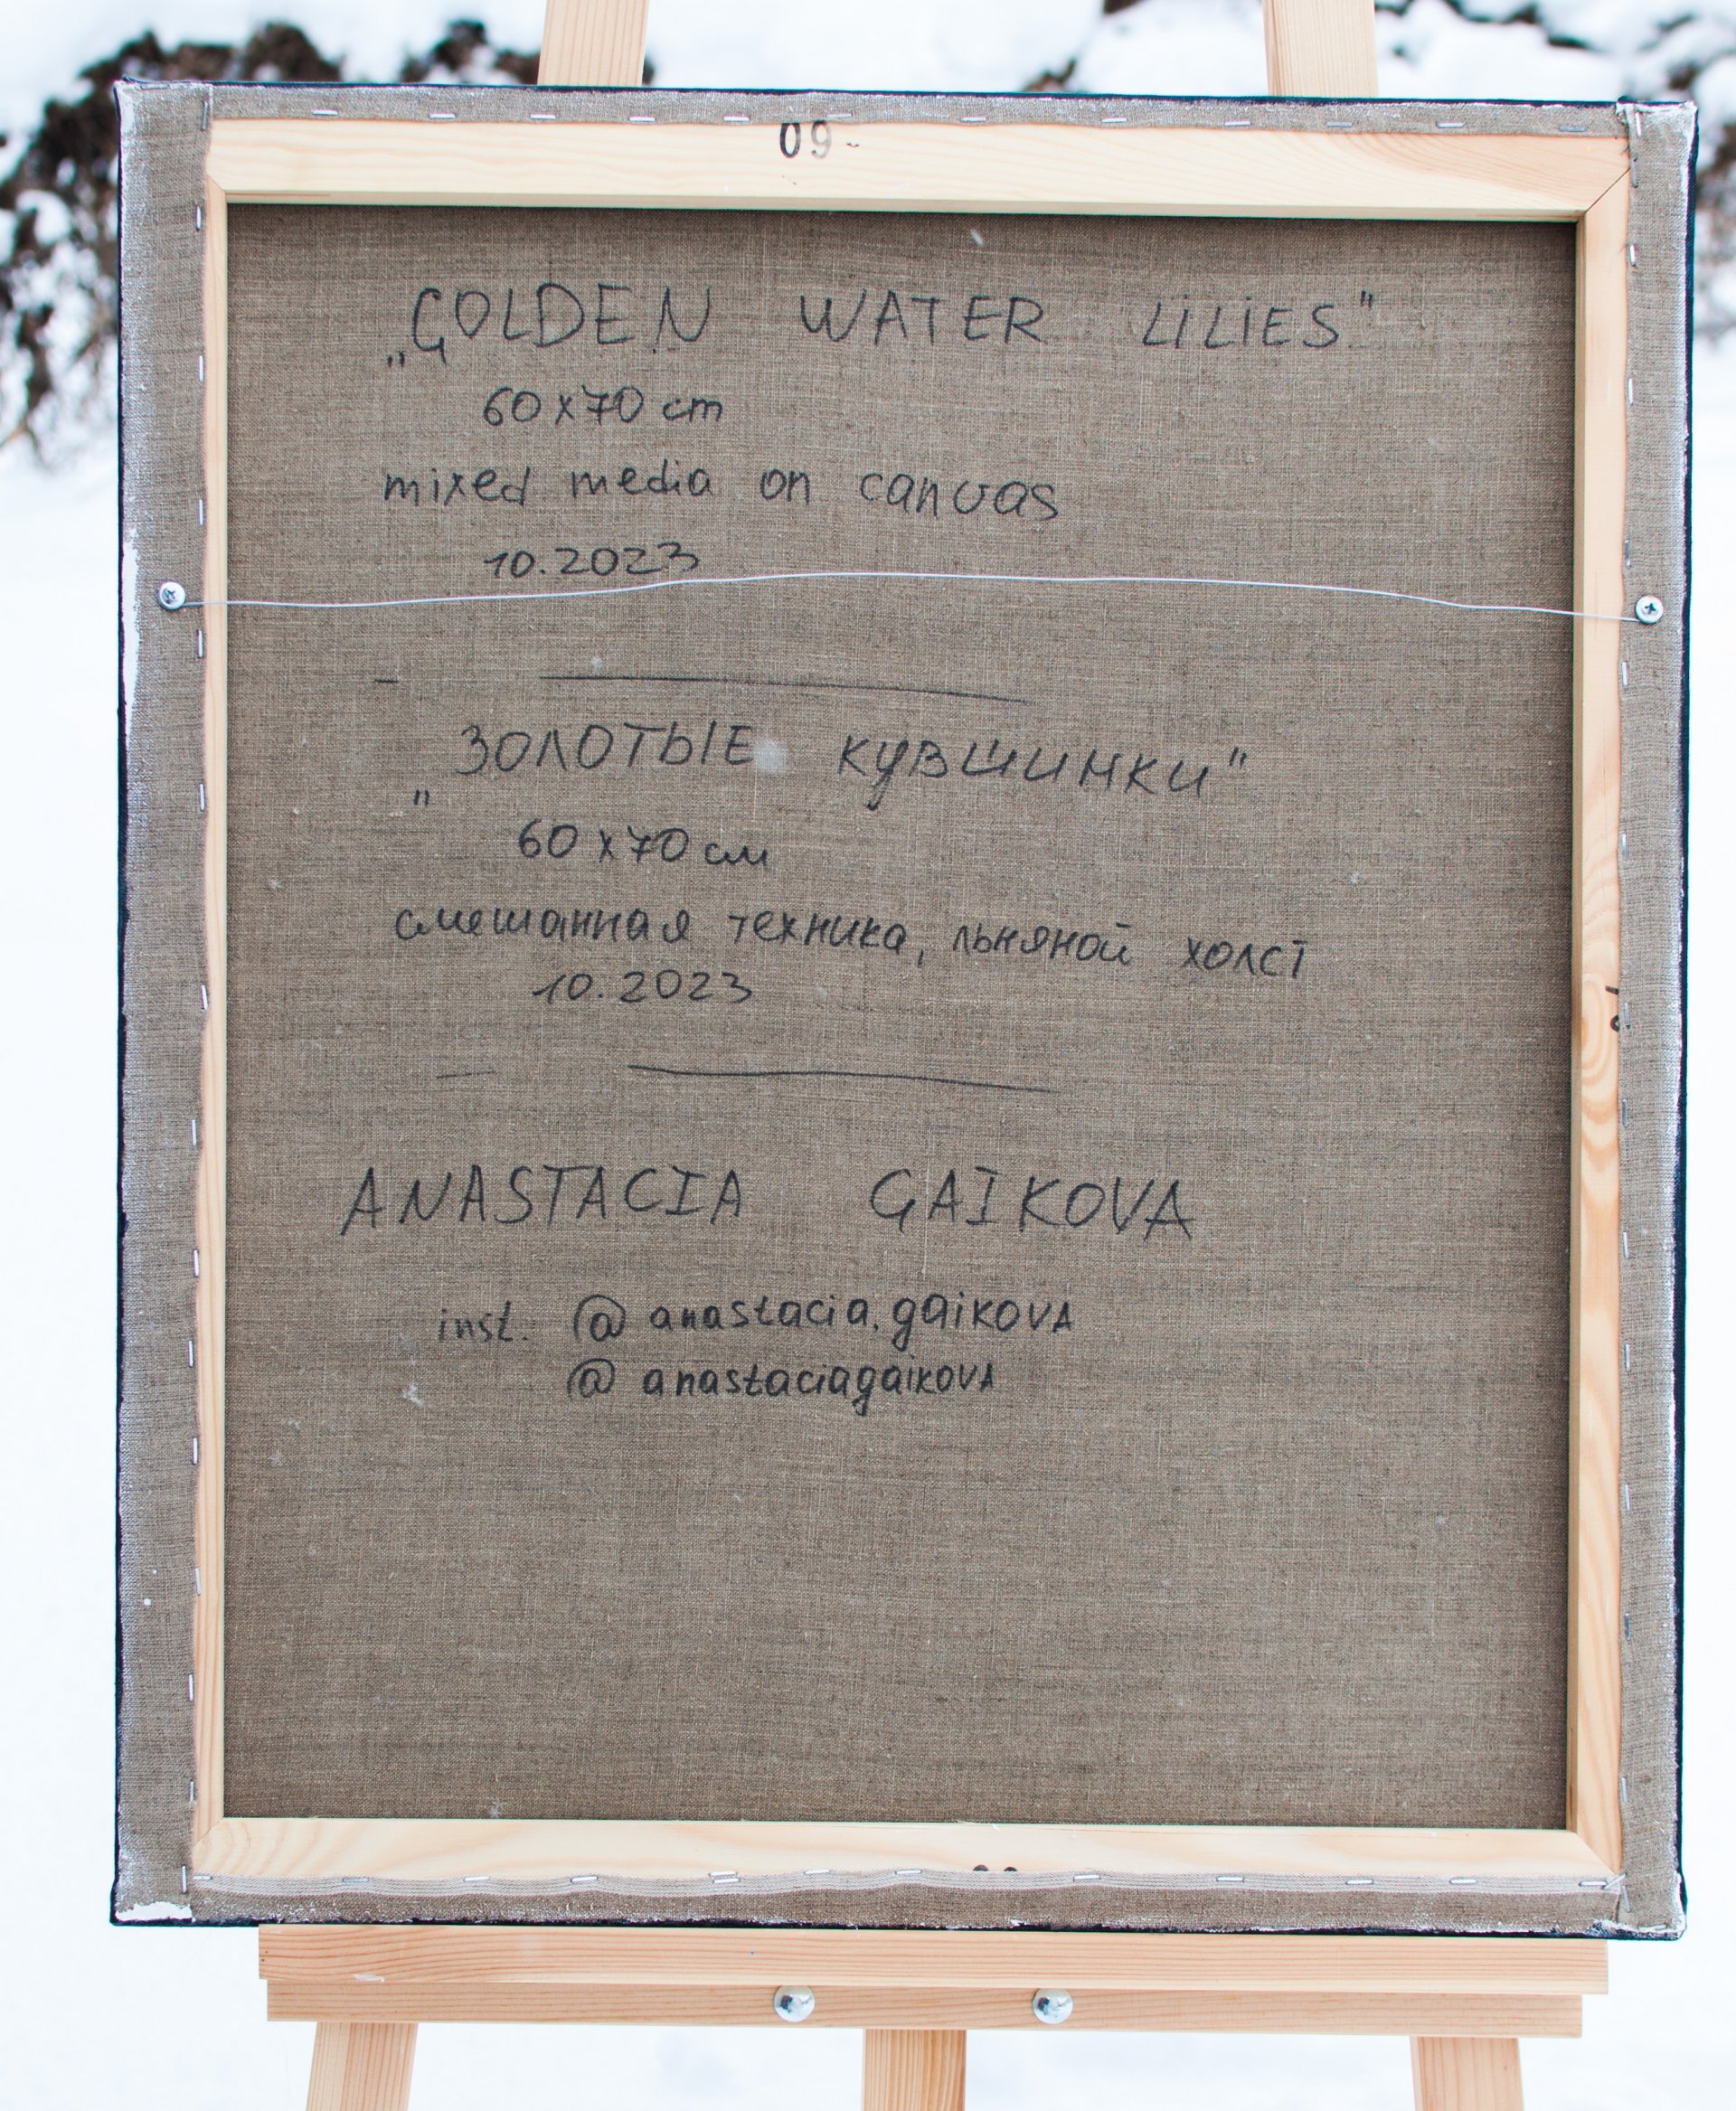 09-
„GOLDEN WATER LILIES"
60x70 cm
mixed media on canvas
10.2023
„ЗОЛОТЫЕ КУВШИНКИ"
60x70 см
смешанная техника, льняной холст
10.2023
ANASTACIA GAIKOVA
inst. @anastacia.gaikova
@anastaciagaikova